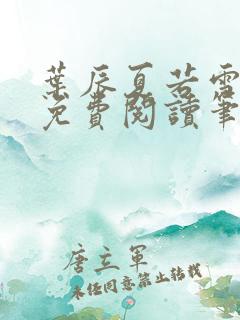 葉辰夏若雪
免費閱讀筆
唐立軍
未經同意禁止轉載